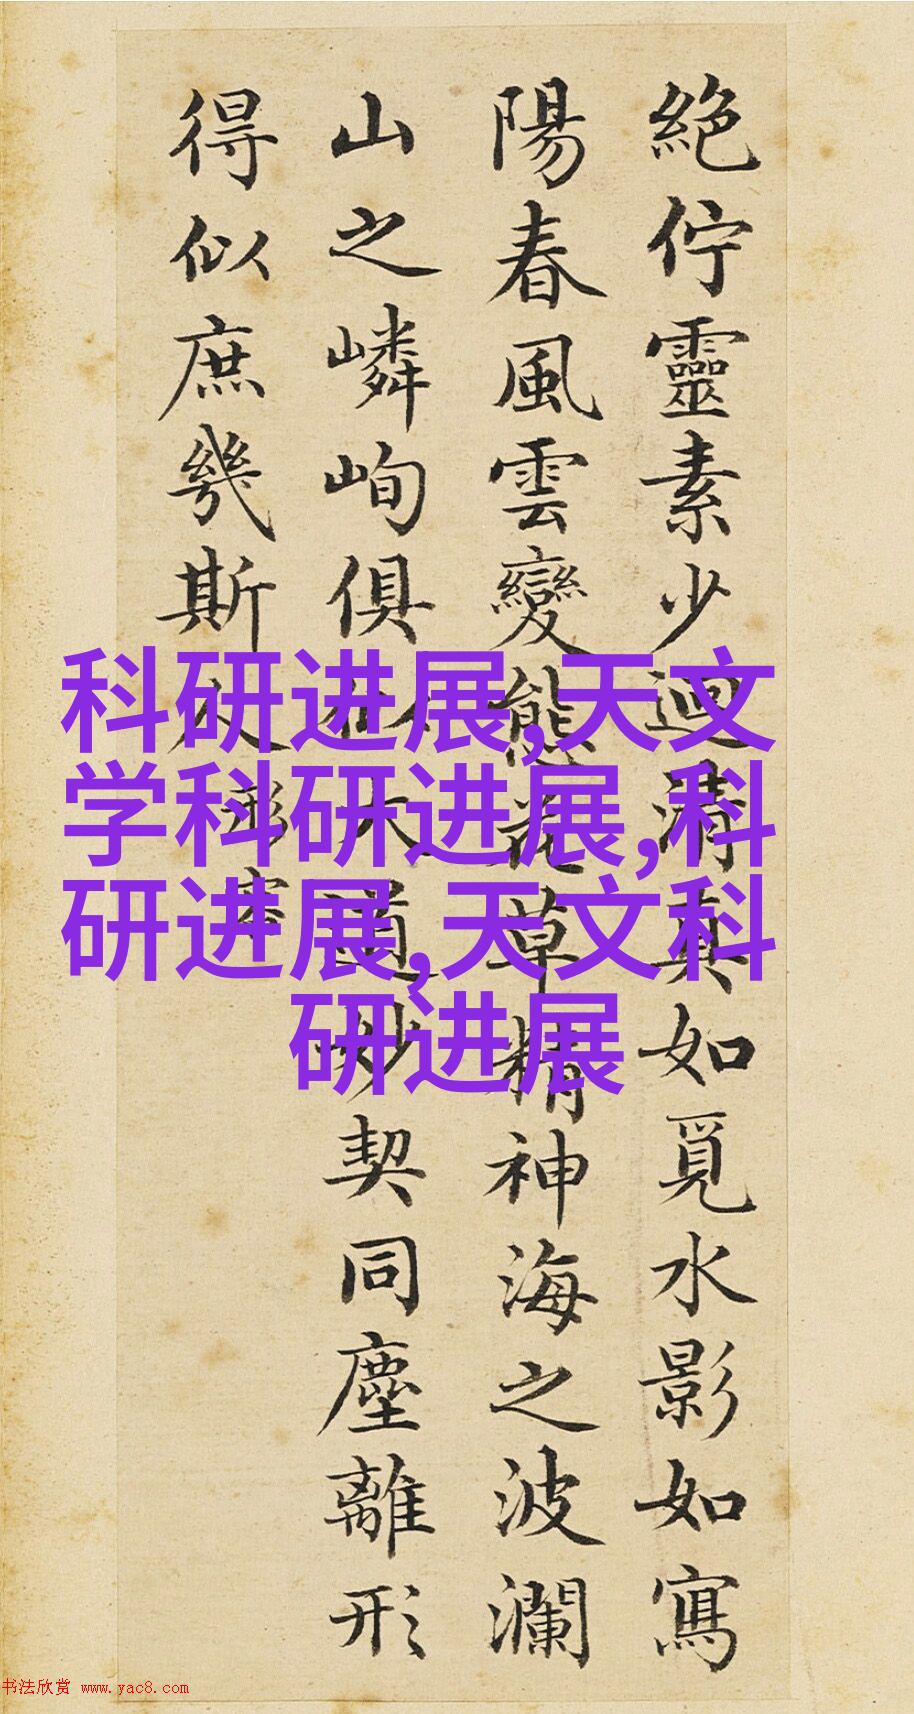 絶佇靈素少迴清真如覓水影如寫
陽春風雲變態花草精神海之波瀾
山之嶙峋俱似大道妙契同塵離形
得似庶幾斯人
科研进展,天文
学科研进展,科
研进展,天文科
研进展
书法欣赏 www.yac8.com